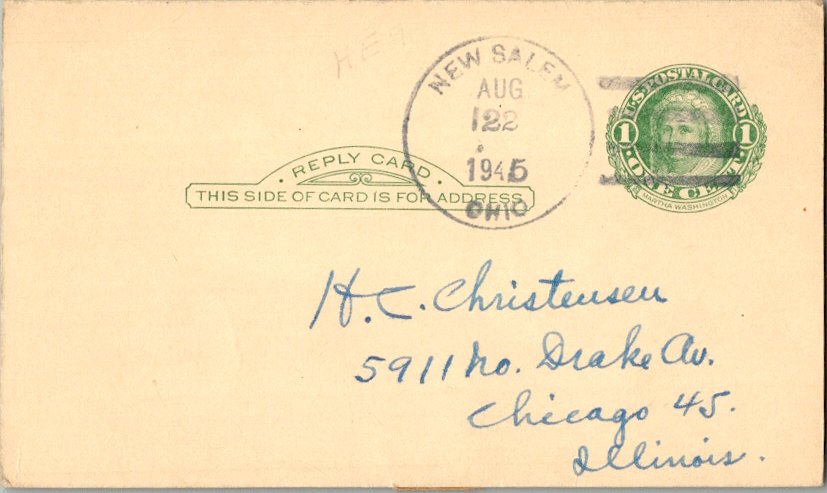 HE9
NEW SALEM
AUG
22
1945
OHIO
U.S. POSTAL CARD
1 1
ONE CENT
MARTHA WASHINGTON
· REPLY CARD ·
THIS SIDE OF CARD IS FOR ADDRESS
H. C. Christensen
5911 No. Drake Av.
Chicago 45.
Illinois.